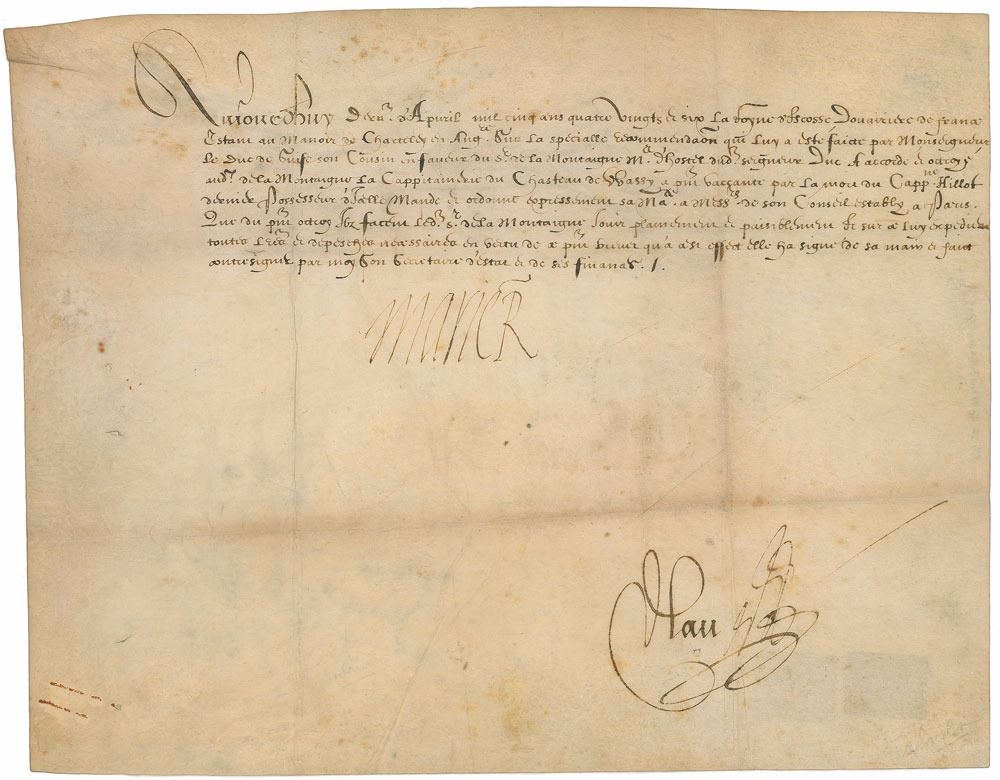 Aujourdhuy dern.r d'Apvril mil cinq cens quatre vingts et six La Royne descosse Douairiere de france
Estant au Manoir de Charteley en Ang.re Sur La specialle recommendaon qui Luy a esté faicte par Monseigneur
le Duc de Guise son Cousin en faveur du s.r de la Montaigne M.e d'hostel dud. seigneur Duc A accordé et octroyé
aud. de la Montaigne La Cappitainerie du Chasteau de Wassy a pnt vaccante par La mort du Capp.ne Hillot
dernier Possesseur d'Icelle Mande et ordonne expressement sa Ma.té a Mess.rs de son Conseil estably a Paris.
Que du pnt octroy Ilz facent led. s.r de la Montaigne Jouir plainement et paisiblement Et sur ce Luy expedier
toutes Lres et depesches necessaires en vertu de ce pnt brevet qu'a cest effect elle ha signé de sa main et faict
contresigner par moy Son Secretaire d'estat et de ses finances. /.
Marie R
Nau